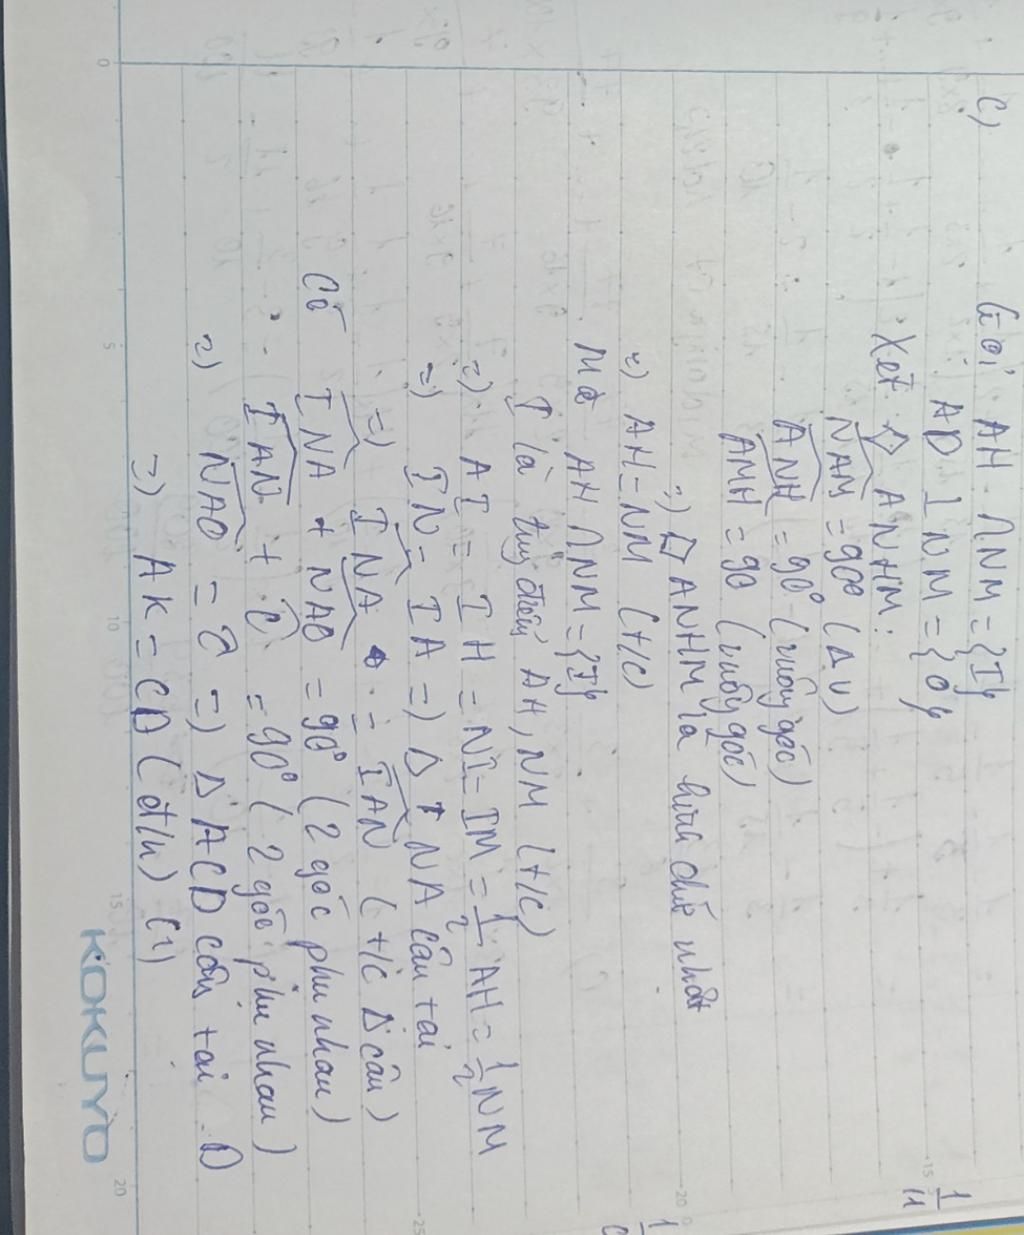 c) Gọi AH ∩ NM = {I}
AD ⊥ NM = {O}
Xét ◇ ANHM:
NAM = 90° (Δ v)
ANH = 90° (vuông góc)
AMH = 90 (vuông góc)
=) □ ANHM là hình chữ nhật
=) AH = NM (t/c)
Mà AH ∩ NM = {I}
I là trung điểm AH, NM (t/c)
=) AI = IH = NI = IM = 1/2 AH = 1/2 NM
=) IN = IA =) Δ INA cân tại
=) INA = IAN (t/c Δ cân)
Có INA + NAO = 90° (2 góc phụ nhau)
IAN + C = 90° (2 góc phụ nhau)
=) NAO = C =) Δ ACD cân tại D
=) AK = CD (đ/n) (1)
KOKUYO
0 5 10 15 20
15 20 25